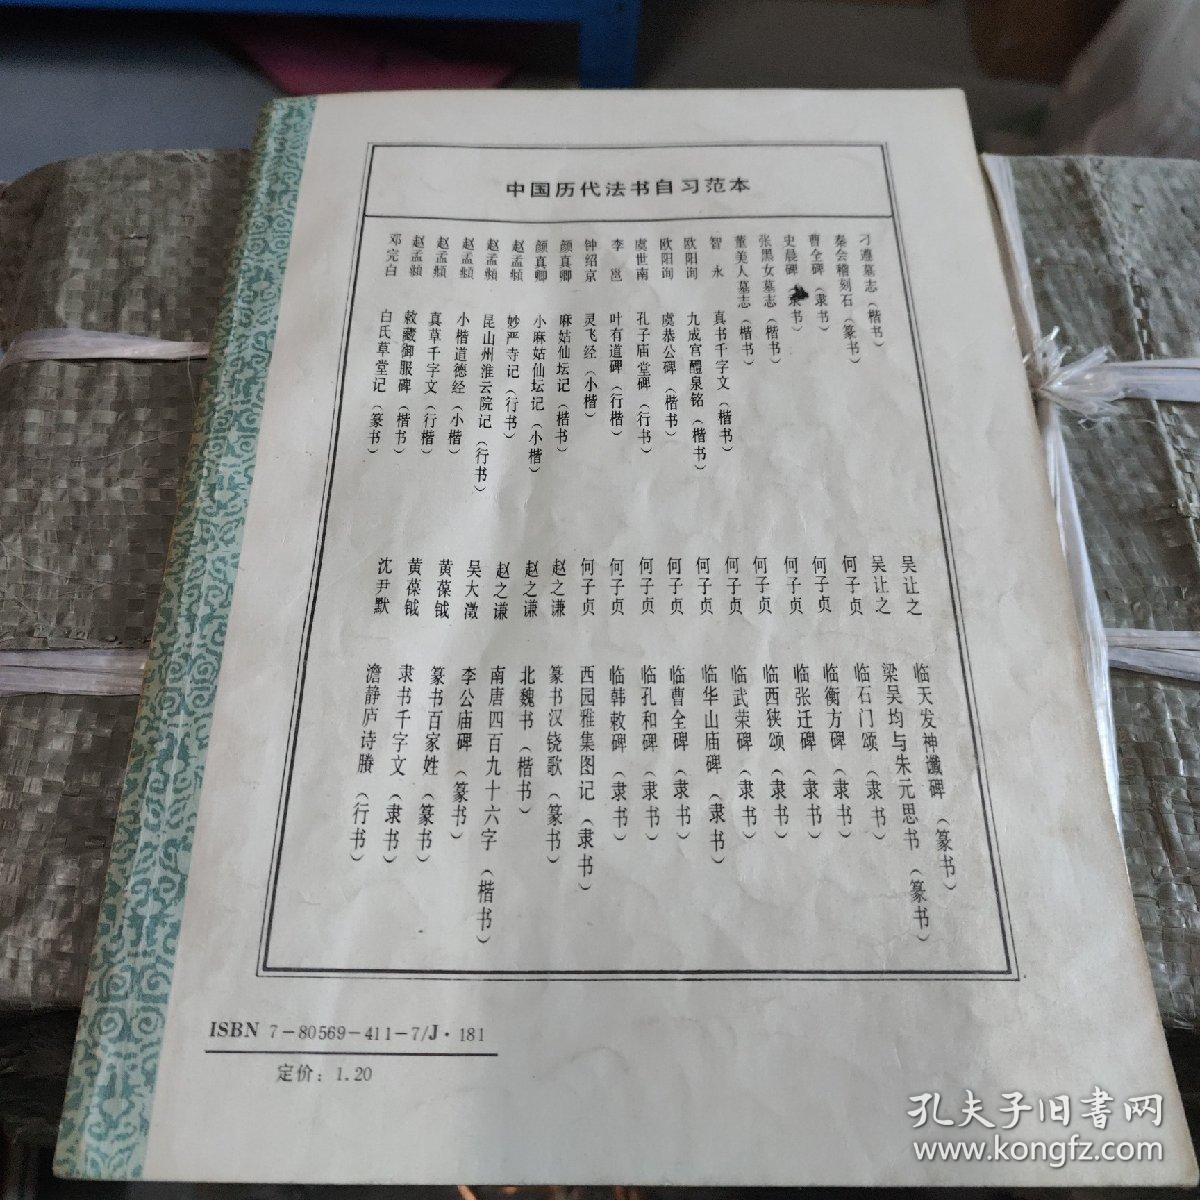 中国历代法书自习范本
刁遵墓志（楷书）
秦会稽刻石（篆书）
曹全碑（隶书）
史晨碑（隶书）
张黑女墓志（楷书）
董美人墓志（楷书）
智永 真书千字文（楷书）
欧阳询 九成宫醴泉铭（楷书）
欧阳询 虞恭公碑（楷书）
虞世南 孔子庙堂碑（行书）
李邕 叶有道碑（行楷）
钟绍京 灵飞经（小楷）
颜真卿 麻姑仙坛记（楷书）
颜真卿 小麻姑仙坛记（小楷）
赵孟頫 妙严寺记（行书）
赵孟頫 昆山州淮云院记（行书）
赵孟頫 小楷道德经（小楷）
赵孟頫 真草千字文（行楷）
赵孟頫 敕藏御服碑（楷书）
邓完白 白氏草堂记（篆书）
吴让之 临天发神谶碑（篆书）
吴让之 梁吴均与朱元思书（篆书）
何子贞 临石门颂（隶书）
何子贞 临衡方碑（隶书）
何子贞 临张迁碑（隶书）
何子贞 临西狭颂（隶书）
何子贞 临武荣碑（隶书）
何子贞 临华山庙碑（隶书）
何子贞 临曹全碑（隶书）
何子贞 临孔和碑（隶书）
何子贞 临韩敕碑（隶书）
何子贞 西园雅集图记（隶书）
赵之谦 篆书汉铙歌（篆书）
赵之谦 北魏书（楷书）
赵之谦 南唐四百九十六字（楷书）
吴大澂 李公庙碑（篆书）
黄葆钺 篆书百家姓（篆书）
黄葆钺 隶书千字文（隶书）
沈尹默 澹静庐诗賸（行书）
ISBN 7-80569-411-7/J·181
定价：1.20
孔夫子旧书网
www.kongfz.com